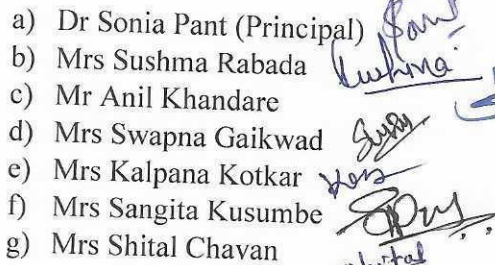 a) Dr Sonia Pant (Principal)
b) Mrs Sushma Rabada Sushma
c) Mr Anil Khandare
d) Mrs Swapna Gaikwad
e) Mrs Kalpana Kotkar
f) Mrs Sangita Kusumbe
g) Mrs Shital Chavan Shital